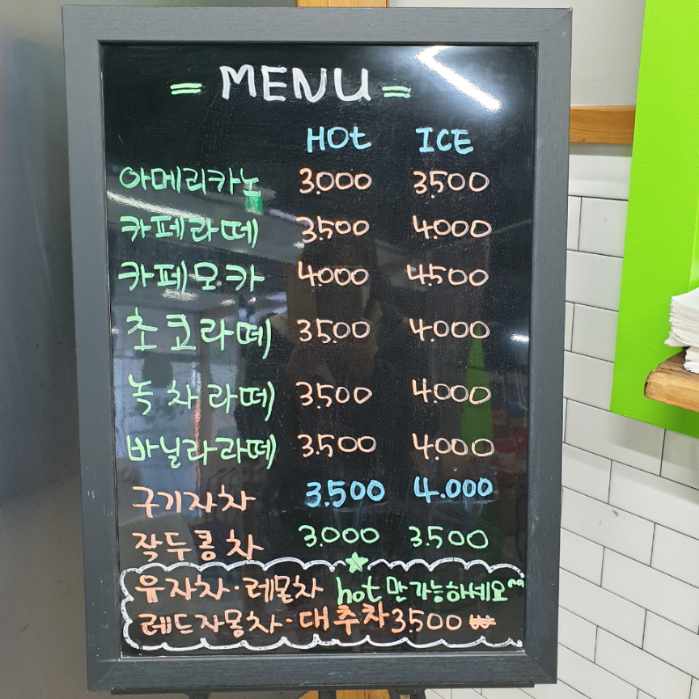 = MENU =
HOt ICE
아메리카노 3.000 3.500
카페라떼 3.500 4.000
카페모카 4.000 4.500
초코라떼 3.500 4.000
녹차라떼 3.500 4.000
바닐라라떼 3.500 4.000
구기자차 3.500 4.000
작두콩차 3.000 3.500
유자차·레몬차 hot만가능하세요^^
레드자몽차·대추차 3.500 ₩